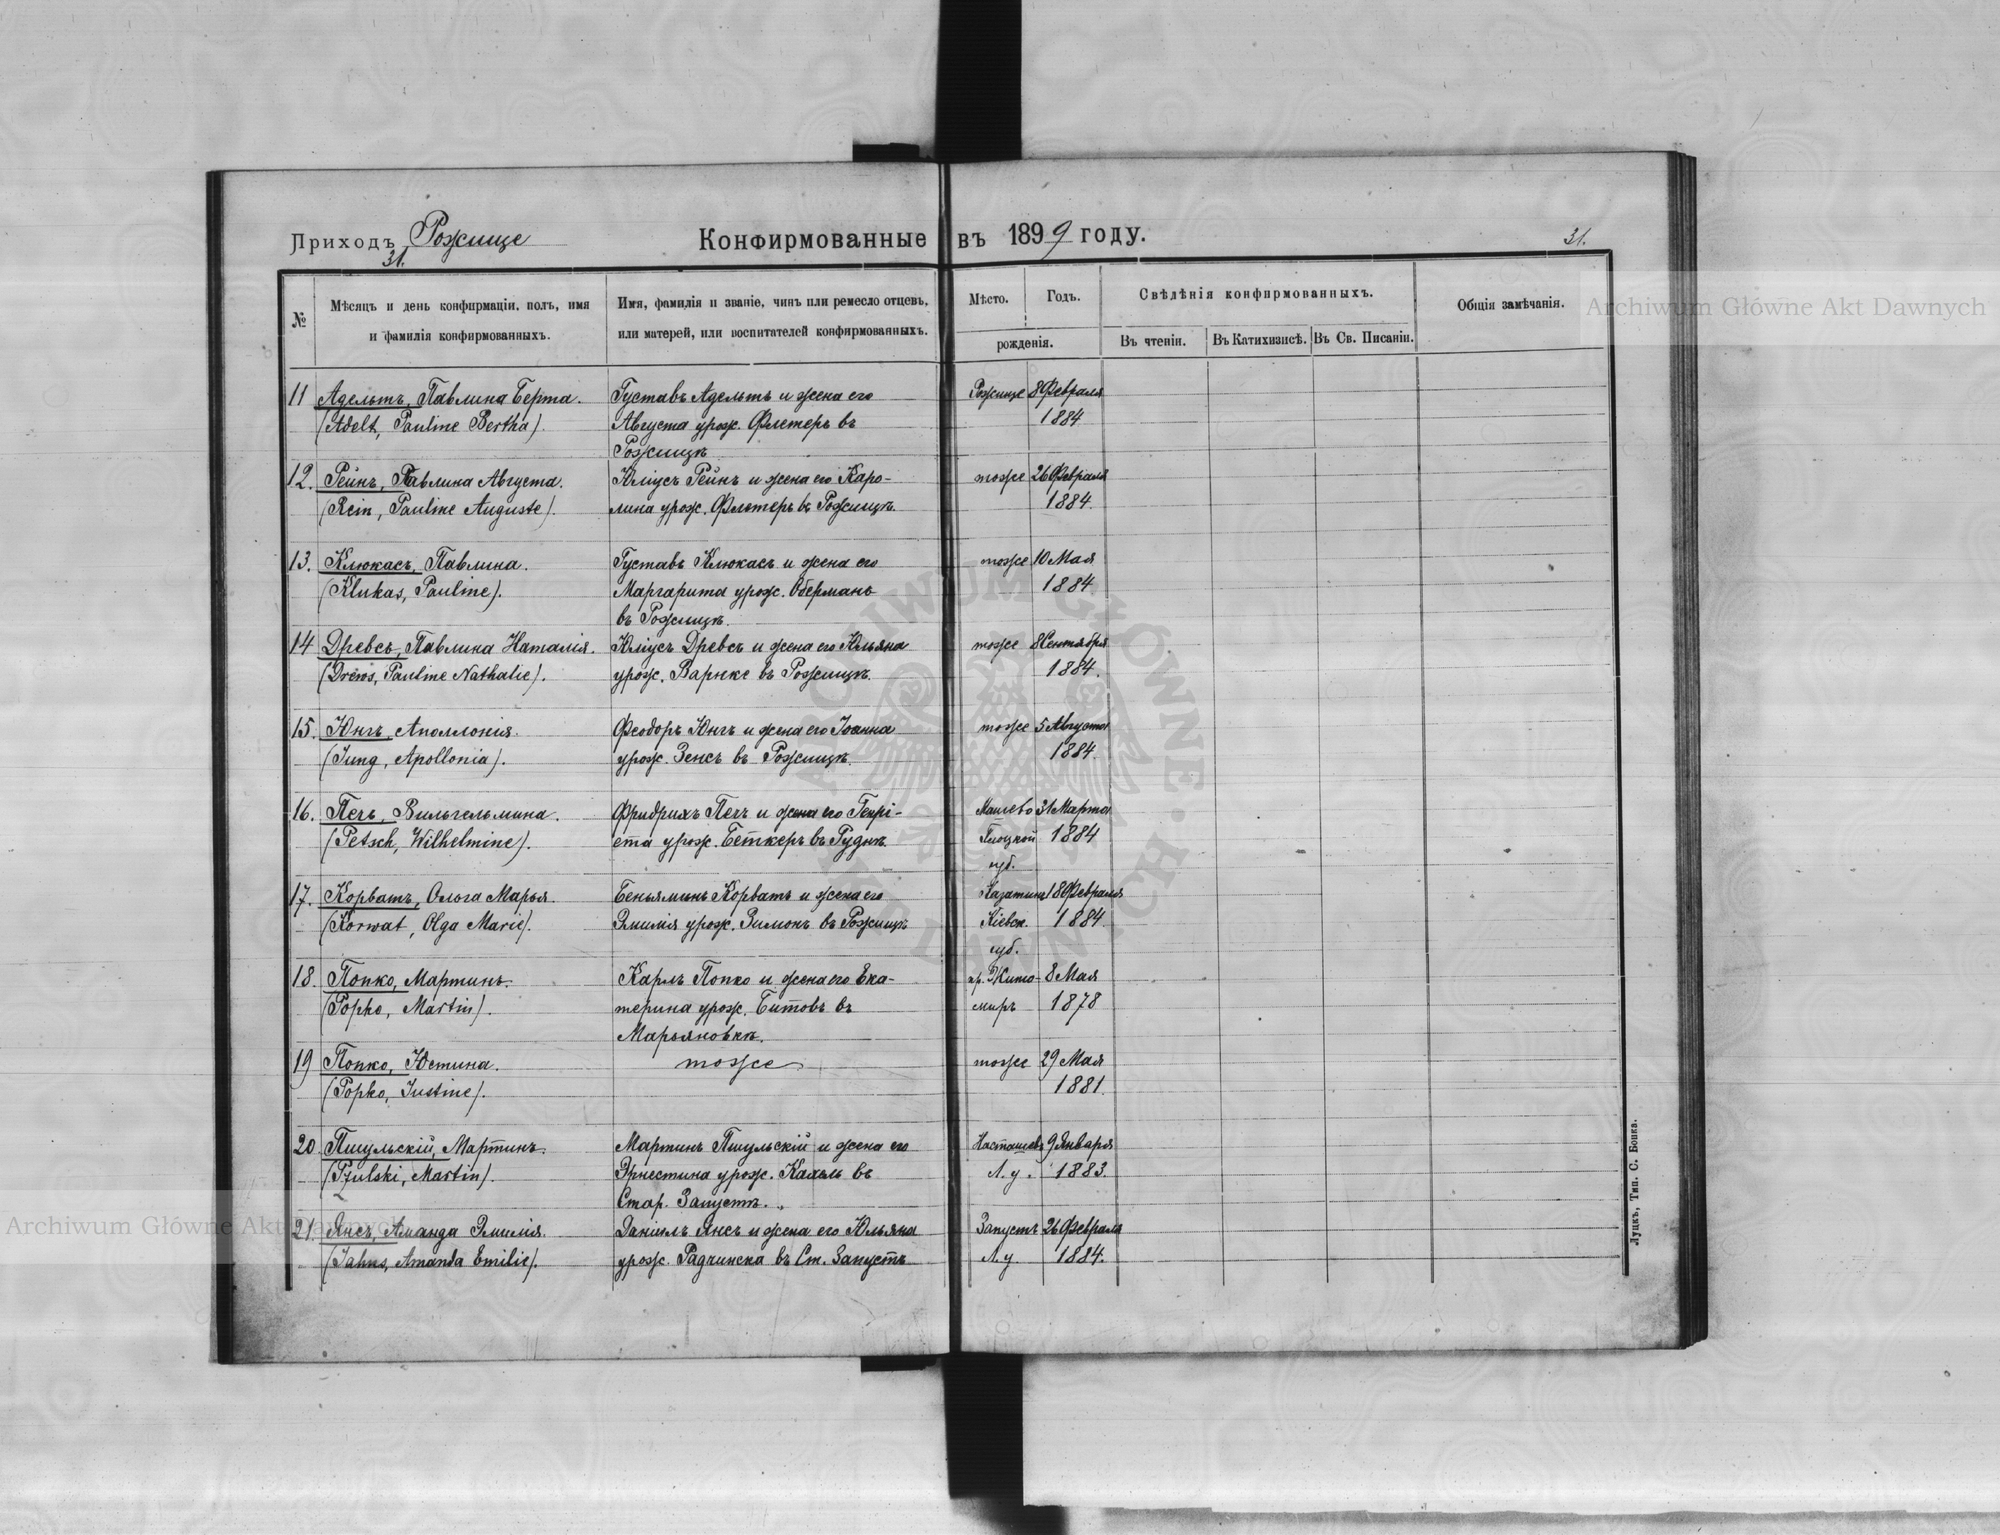 Приходъ Рожище
31.
Конфирмованные въ 1899 году.
31.
№
Мѣсяцъ и день конфирмаціи, полъ, имя
и фамилія конфирмованныхъ.
Имя, фамилія и званіе, чинъ или ремесло отцевъ,
или матерей, или воспитателей конфирмованныхъ.
Мѣсто. Годъ.
рожденія.
Свѣдѣнія конфирмованныхъ.
Въ чтеніи. Въ Катихизисѣ. Въ Св. Писаніи.
Общія замѣчанія.
11 Адельтъ, Павлина Берта. Густавъ Адельтъ и жена его Рожище 8 Февраля
(Adelt, Pauline Bertha). Августа урож. Флетеръ въ 1884
Рожищѣ
12. Рейнъ, Павлина Августа. Юліусъ Рейнъ и жена его Каро- тоже 26 Февраля
(Rein, Pauline Auguste). лина урож. Фльтеръ въ Рожищѣ. 1884.
13. Клюкасъ, Павлина. Густавъ Клюкасъ и жена его тоже 10 Мая
(Klukas, Pauline). Маргарита урож. Оберманъ 1884
въ Рожищѣ.
14 Древсъ, Павлина Наталія. Юліусъ Древсъ и жена его Юльяна тоже 8 Сентября
(Drews, Pauline Nathalie). урож. Варнке въ Рожищѣ. 1884.
15. Юнгъ, Аполлонія. Феодоръ Юнгъ и жена его Іоанна тоже 5 Августа
(Jung, Apollonia). урож. Зенсъ въ Рожищѣ. 1884.
16. Печъ, Вильгельмина. Фридрихъ Печъ и жена его Генрі- 31 Марта
(Petsch, Wilhelmine). ета урож. Беткеръ въ Рудкѣ. Плоцкой 1884
губ.
17. Корватъ, Ольга Марья. Беньяминъ Корватъ и жена его Казатинъ 18 Февраля
(Korwat, Olga Marie). Эмилія урож. Зимонъ въ Рожищѣ Кіевск. 1884.
губ.
18. Попко, Мартинъ. Карлъ Попко и жена его Ека- пр. Жито- 8 Мая
(Popko, Martin). терина урож. Битовъ въ миръ 1878
Марьяновкѣ.
19 Попко, Юстина. тоже тоже 29 Мая
(Popko, Justine). 1881.
20. Пшульскій, Мартинъ. Мартинъ Пшульскій и жена его 9 Января
(Pzulski, Martin). Эрнестина урож. въ Л. у. 1883.
Стар. Запустѣ.
21. Янсъ, Аманда Эмилія. Даніилъ Янсъ и жена его Юльяна Запустъ 26 Февраля
(Jahns, Amanda Emilie). урож. Радчинска въ Ст. Запустѣ Л. у 1884.
Луцкъ, Тип. С. Бонка.
Archiwum Główne Akt Dawnych
Archiwum Główne Akt Dawnych
ARCHIWUM GŁÓWNE AKT DAWNYCH